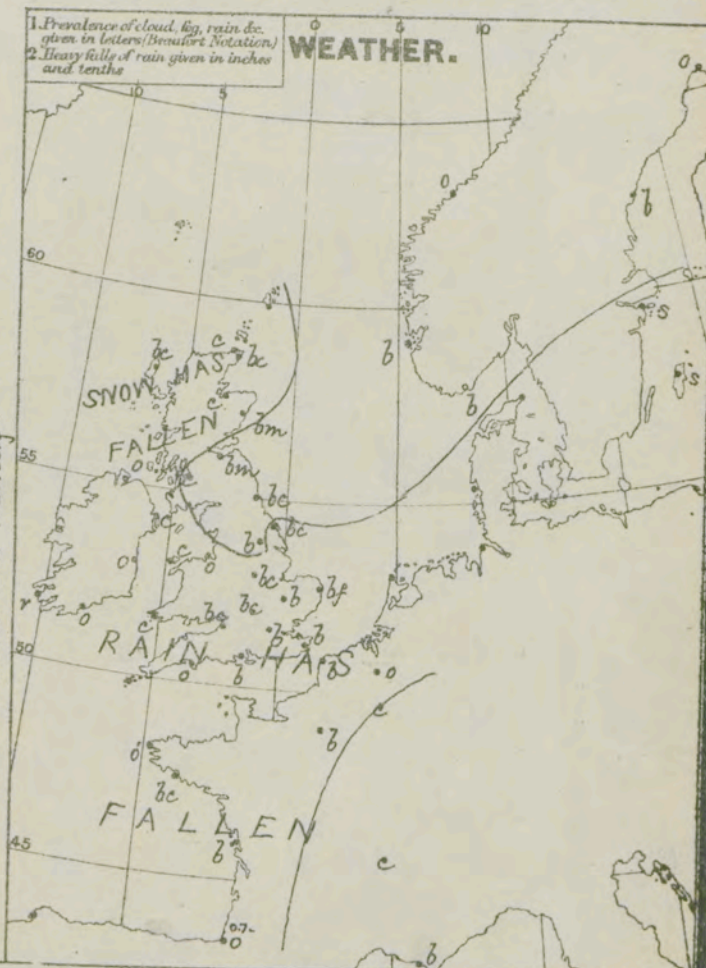 1. Prevalence of cloud, fog, rain &c.
given in letters (Beaufort Notation)
2. Heavy falls of rain given in inches
and tenths
WEATHER.
0
10
5
0
5
10
o
o
b
60
s
b
s
bc
c
bc
SNOW HAS
b
c
FALLEN
bm
bm
55
o
r
bc
c
bc
b
o
c
o
bc
b
bf
r
o
c
bc
b
b
RAIN HAS
50
o
b
b
o
c
b
o
bc
FALLEN
b
45
c
0.7
o
b